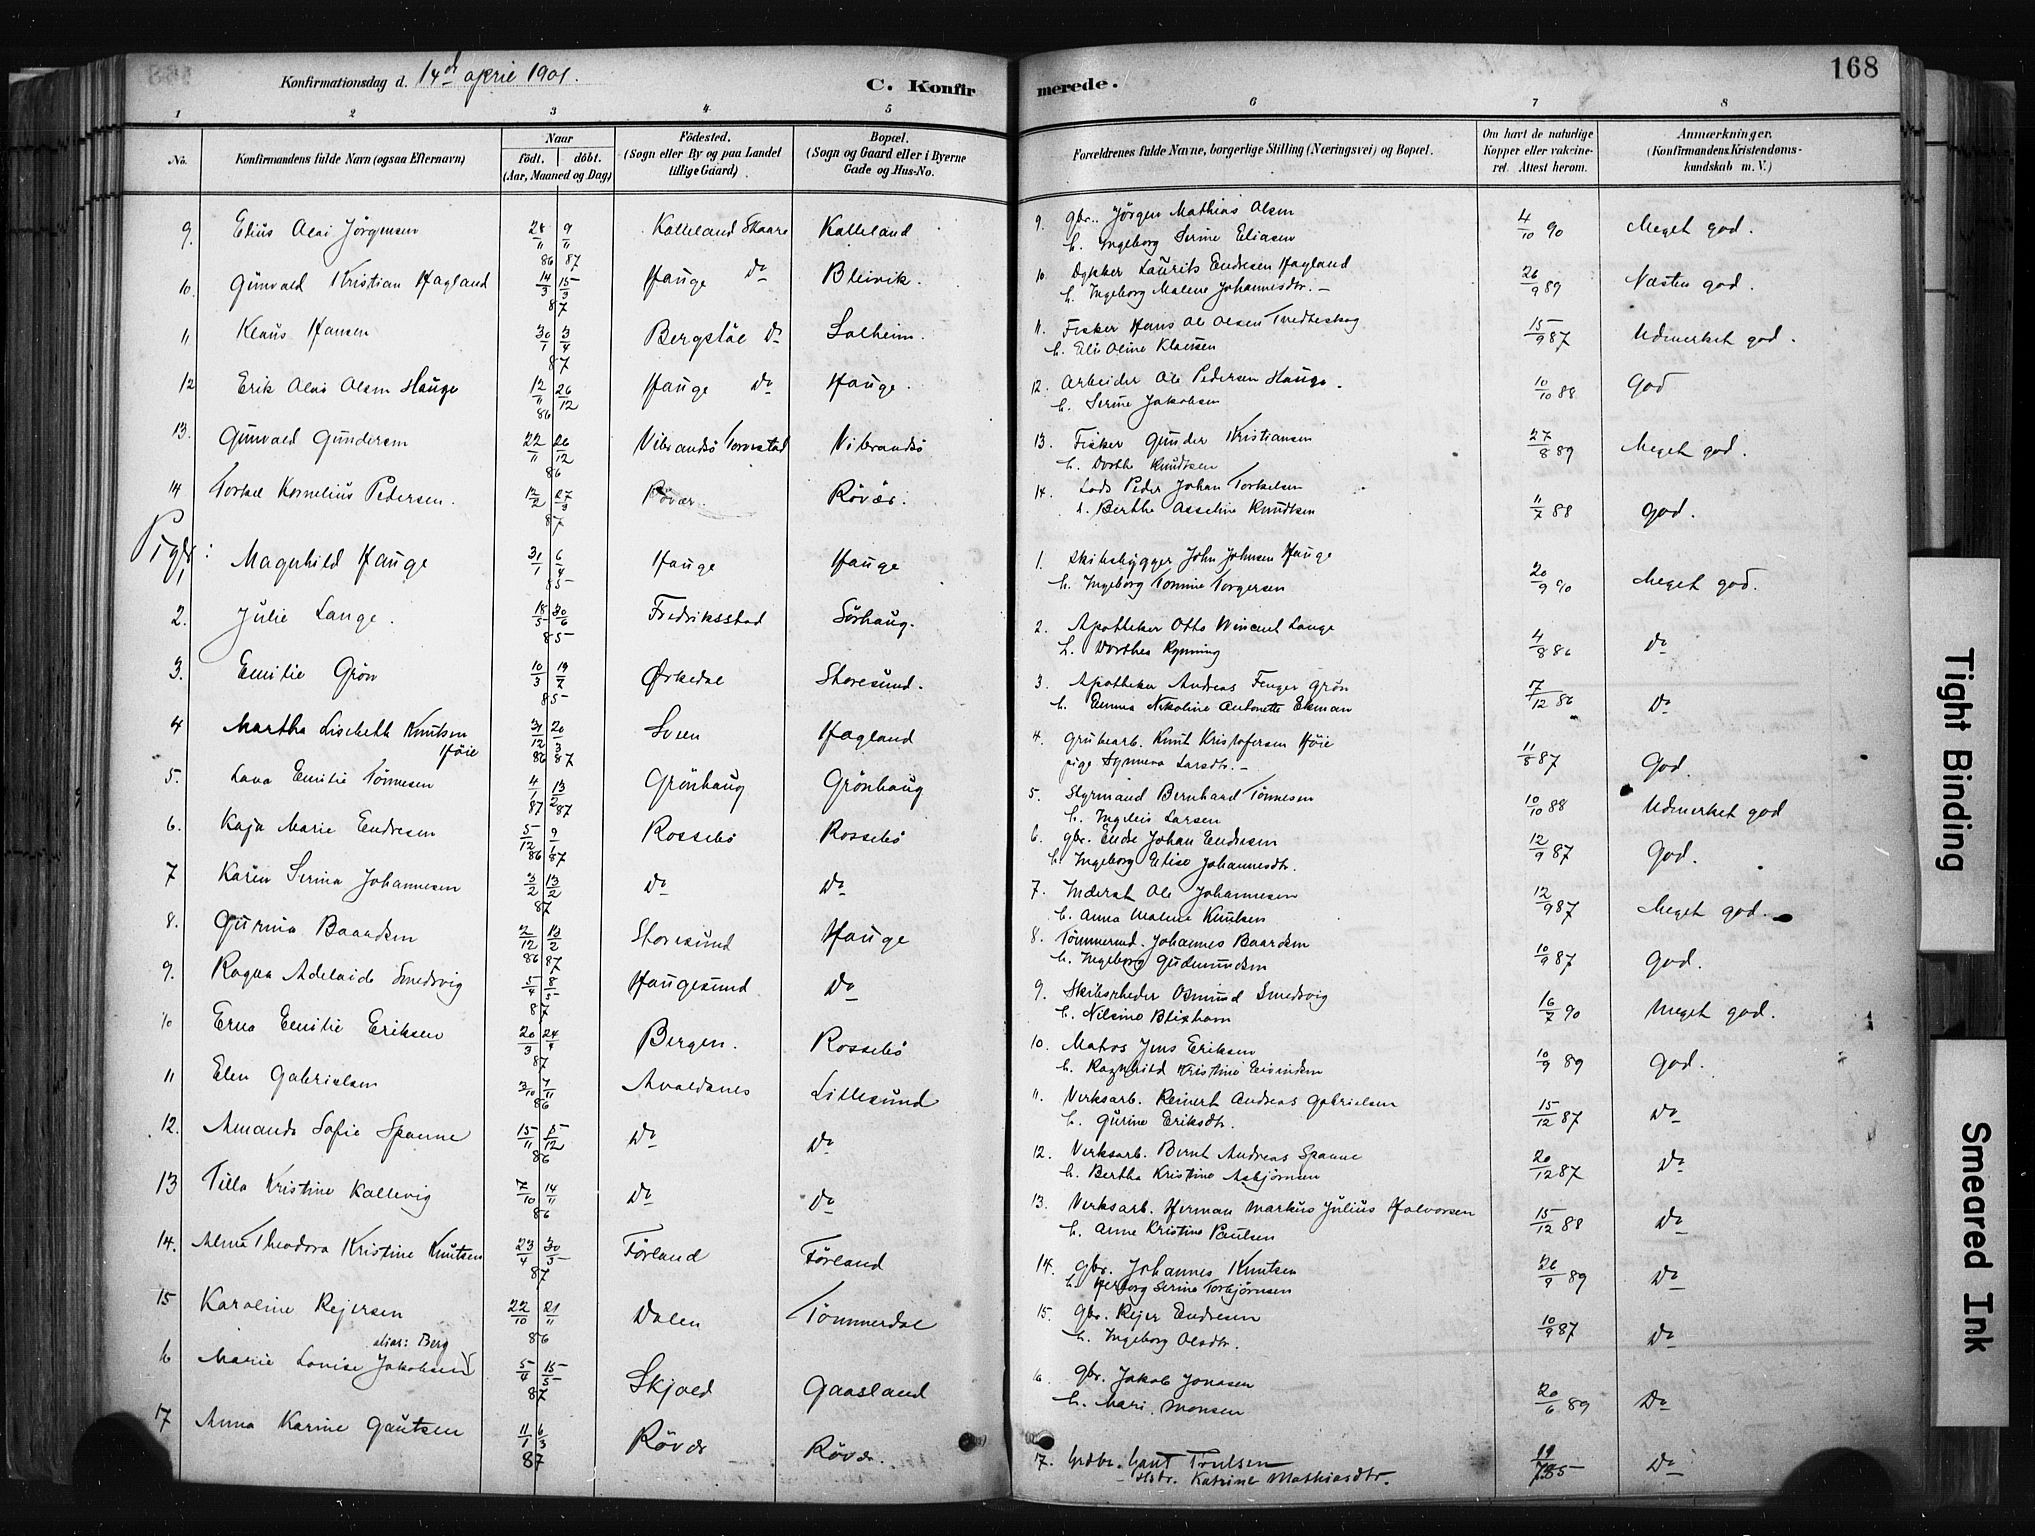 Konfirmationsdag d. 14de april 1901.
C. Konfirmerede.
168
1 2 3 4 5 6 7 8
No.
Konfirmandens fulde Navn (ogsaa Efternavn)
Naar
födt. döbt.
(Aar, Maaned og Dag)
Födested.
(Sogn eller By og paa Landet
tillige Gaard)
Bopæl.
(Sogn og Gaard eller i Byerne
Gade og Hus-No.
Forældrenes fulde Navne, borgerlige Stilling (Næringsvei) og Bopæl.
Om havt de naturlige
Kopper eller vakcine-
ret. Attest herom.
Anmærkninger.
(Konfirmandens Kristendoms-
kundskab m. V.)
9. Elius Olai Jörgensen 28/11 86 9/11 87 Kalleland Skaare Kalleland 9. gbr. Jörgen Mathias Olsen 4/10 90 Meget god.
h. Ingeborg Serine Eliasen
10. Gunvald Kristian Hagland 14/3 15/3 87 Hauge Do Bleivik. 10. Dykker Laurits Endresen Hagland 26/9 89 Næsten god.
h. Ingeborg Malene Johannesdtr. -
11 Klaus Hansen 30/1 3/4 87 Bergstöl Do Solheim. 11. Fisker Hans Ol Olsen Tvedteskog 15/9 87 Udmerket god.
h. Eli Oline Klausen
12 Erik Olai Olsen Hauge 12/11 26/12 86 Hauge Do Hauge. 12. Arbeider Ole Pedersen Hauge. 10/10 88 God
h. Serine Jakobsen
13. Gunvald Gundersen 22/11 26/12 86 Vibrandsö Torvestad Vibrandsö 13. Fisker Gunder Kristiansen 27/8 89 Meget god.
h. Dorthe Knudtsen
14 Torkel Kornelius Pedersen. 12/2 27/3 87 Rövær. Rövær. 14. Lods Peder Johan Torkelsen 11/7 88 god.
h. Berthe Asseline Knudtsen
Piger:
1 Magnhild Hauge 31/1 6/4 85 Hauge Hauge 1. Skibsbygger John Johnsen Hauge 20/9 90 Meget god.
h. Ingeborg Tomine Torgersen
2. Julie Lange. 18/5 30/6 85 Fredriksstad Sörhaug. 2. Apotheker Otto Wincent Lange 4/8 86 Do
h. Dorthea Rynning
3. Emilie Grön 10/3 19/7 85 Ørkedal Storesund. 3. Apotheker Andreas Fenger Grön 7/12 86 Do
h. Emma Nikoline Antonette Ekman
4 Martha Lisebeth Knutsen Höie 31/12 86 20/3 87 Sveen Hagland 4. Grubearb. Knut Kristofersen Höie 11/8 87 God.
pige Synneva Larsdtr. -
5. Lava Emilie Tönnesen 4/1 87 13/2 87 Grönhaug Grönhaug 5. Styrmand Bernhard Tönnesen 10/10 88 Udmerket god
h. Ingleis Larsen
6. Kaja Marie Endresen 5/12 86 9/1 87 Rossebö Rossebö 6. gbr. Endre Johan Endresen 12/9 87 God.
h. Ingeborg Elise Johannesdtr.
7 Karen Serina Johannesen 3/2 13/2 87 Do Do 7. Inderst Ole Johannesen 12/9 87 Meget god.
h. Anna Malene Knutsen
8. Gurina Baardsen 2/12 86 13/2 87 Storesund Hauge 8. Tömmermd. Johannes Baardsen 10/9 87 God.
h. Ingeborg Gudmundsen
9. Ragna Adelaide Smedsvig 5/4 8/5 87 Haugesund Do 9. Skibsrheder Osmund Smedsvig 16/7 90 Meget god.
h. Nilsine Blixhavn
10 Erna Emilie Eriksen 20/3 24/4 87 Bergen. Rossebö 10. Matros Jens Eriksen 10/9 89 God.
h. Ragnhild Kristine Eivindsen
11 Elen Gabrielsen 3/10 7/11 86 Avaldsnes Lillesund 11. Verksarb. Reinert Andreas Gabrielsen 15/12 87 Do
h. Gurine Eriksdtr.
12. Amanda Sofie Spanne 15/11 5/12 86 Do Do 12. Verksarb. Bernt Andreas Spanne 20/12 87 Do
h. Bertha Kristine Asbjörnsen
13 Tilla Kristine Kallevig 7/10 14/11 86 Do Do 13. Verksarb. Herman Markus Julius Halvorsen 15/12 88 Do
h. Anne Kristine Paulsen
14. Alma Theodora Kristine Knutsen 23/4 30/5 87 Förland Förland 14. gbr. Johannes Knutsen 26/9 89 Do
h. Herborg Serine Torbjörnsen
15 Karoline Rejersen 22/10 21/11 86 Dalen Tömmerdal 15. gbr. Rejer Endresen 10/9 87 Do
h. Ingeborg Olsdtr.
alias: Berg
16 Marie Lovise Jakobsen 5/4 15/5 87 Skjold Gaasland 16 gbr. Jakob Jonasen 20/6 89 Do
h. Mari. Monsen
17 Anna Karine Gautsen 11/1 6/3 87 Rövær Rövær. 17. Grdbr. Gaut Trulsen 19/7 85 Do
Hstr. Katrine Mathiasdtr.
Tight Binding
Smeared Ink